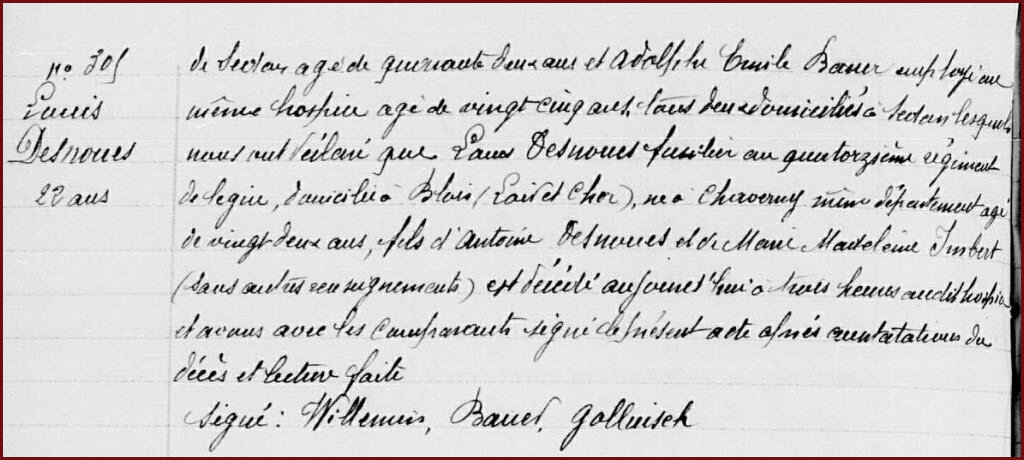 n° 305
Louis
Desnoues
22 ans
de Sedan agé de quarante deux ans et Adolphe Emile Bauer employé au
même hospice agé de vingt cinq ans, tous deux domiciliés à Sedan lesquels
nous ont déclaré que Louis Desnoues fusilier au quatorzième régiment
de ligne, domicilié à Blois (Loir et Cher), né à Cheverny même département agé
de vingt deux ans, fils d'Antoine Desnoues et de Marie Madeleine Imbert
(sans autres renseignements) est décédé aujourd'hui à trois heures audit hospice
et avons avec les comparants signé le présent acte après constatation du
décès et lecture faite
signé: Willemin, Bauer, Gollnisch